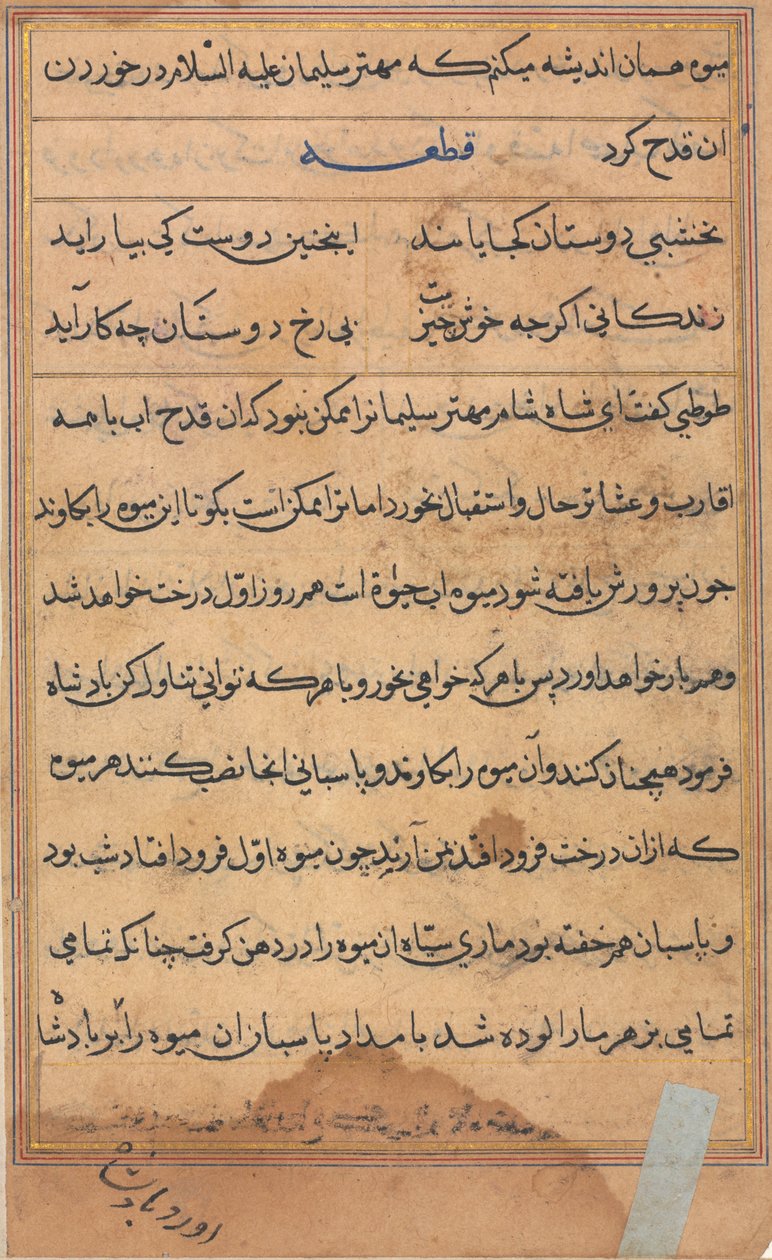 میوه همان اندیشه میکنم که مهتر سلیمان علیه السلام در خوردن
ان قدح کرد قطعه
نخشبی دوستان کجا یابند اینچنین دوست کی بیاراید
زندکانی اکرچه خوش چیزیست بی رخ دوستان چه کار آید
طوطی کفت ای شاه شام مهتر سلیمانرا ممکن نبود کدان قدح اب با همه
اقارب و عشائر حال و استقبال بخورد اما ترا ممکن است بکو تا این میوه را بکاوند
جون پرورش یافته شود میوه اب حیوة است همر روز اوّل درخت خواهد شد
و همر بار خواهد اورد پس با هرکه خواهی بخور و با هرکه توانی تناول کن بادشاه
فرمود همچنان کنند و آن میوه را بکاوند و پاسبانی انجا نصب کنند هر میوه
که ازان درخت فرود افتد بمن آرید چون میوه اوّل فرود افتاد شب بود
و پاسبان همر خفته بود ماری سیّاه ان میوه را در دهن کرفت چنانکه تمامی
تمامی بزهر مار الوده شد بامداد پاسبان ان میوه را بر بادشاه
اورد بادشاه